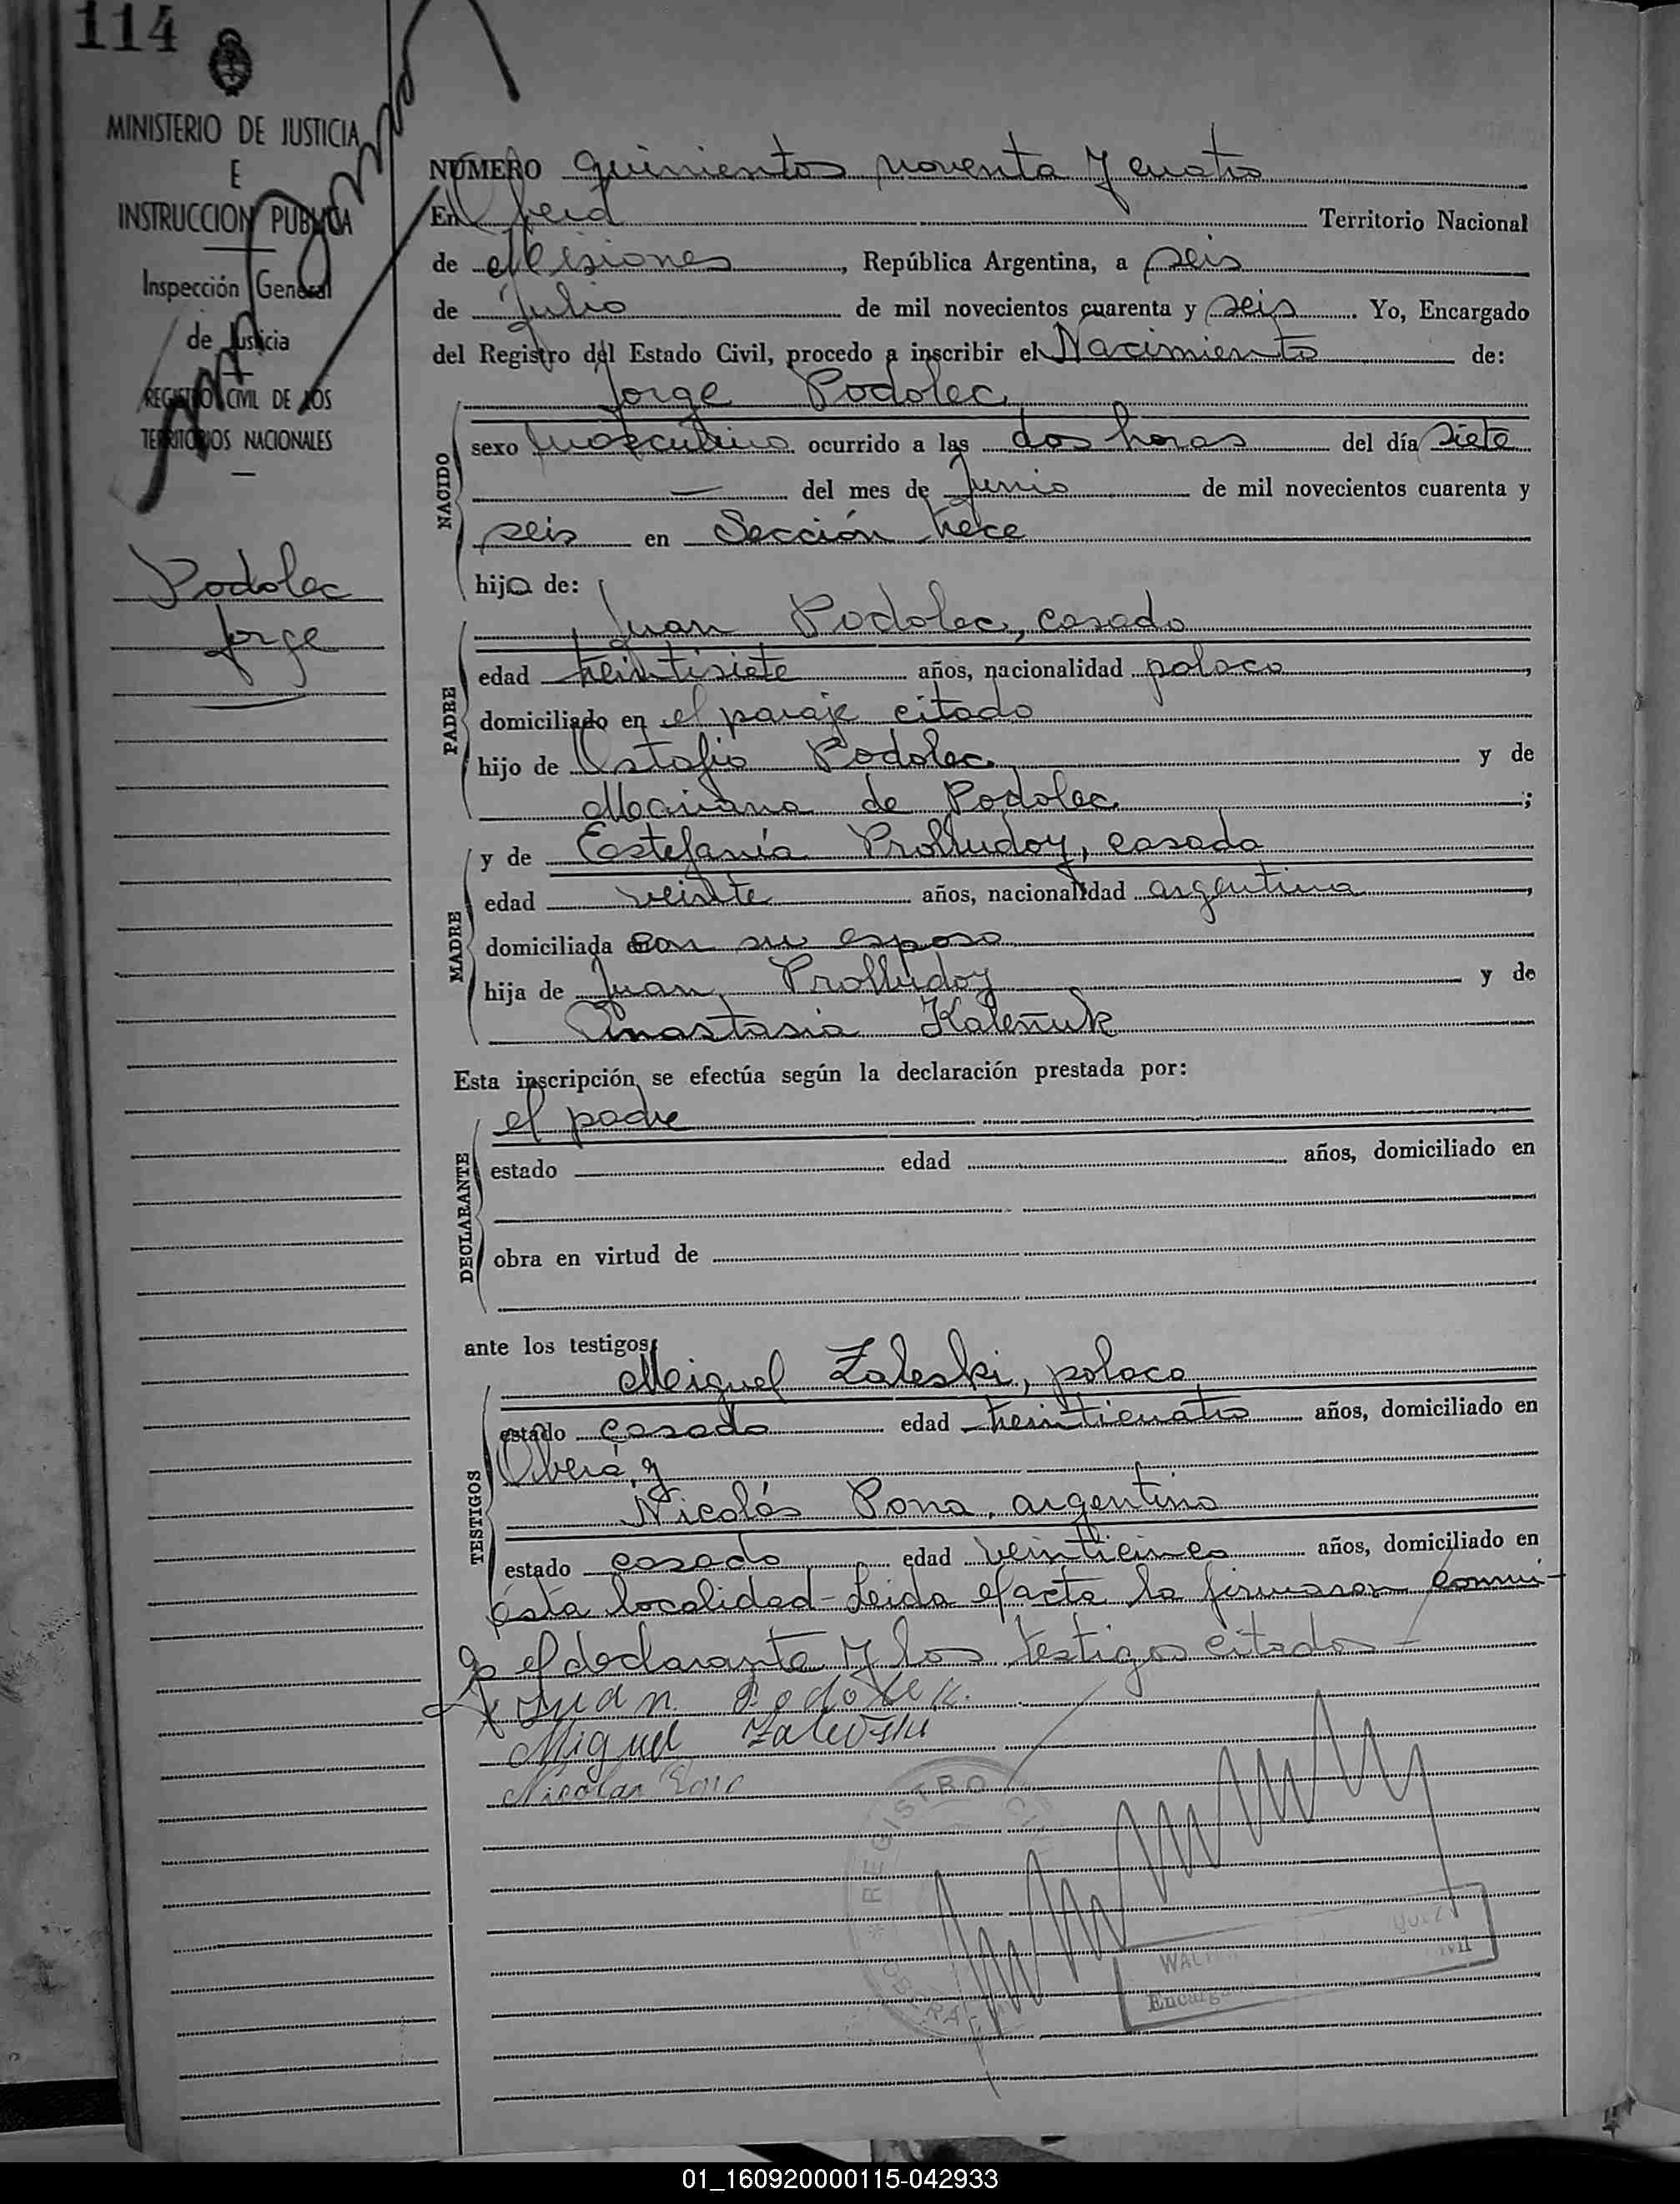 114
MINISTERIO DE JUSTICIA
E
INSTRUCCION PUBLICA
Inspección General
de Justicia
REGISTRO CIVIL DE LOS
TERRITORIOS NACIONALES
Podolec
Jorge
NUMERO quinientos noventa y cuatro
En Oberá Territorio Nacional
de Misiones, República Argentina, a seis
de Julio de mil novecientos cuarenta y seis. Yo, Encargado
del Registro del Estado Civil, procedo a inscribir el Nacimiento de:
Jorge Podolec
NACIDO
sexo masculino ocurrido a las dos horas del día siete
— del mes de Junio de mil novecientos cuarenta y
seis en Sección trece
hijo de:
PADRE
Juan Podolec, casado
edad treintisiete años, nacionalidad polaca,
domiciliado en el paraje citado
hijo de Ostafio Podolec y de
Mariana de Podolec;
MADRE
y de Estefanía Prolludoy, casada
edad veinte años, nacionalidad argentina,
domiciliada con su esposo
hija de Juan Prolludoy y de
Anastasia Kaleñuk
Esta inscripción se efectúa según la declaración prestada por:
DECLARANTE
el padre
estado edad años, domiciliado en
obra en virtud de
ante los testigos:
TESTIGOS
Miguel Zaleski, polaco
estado casado edad treinticuatro años, domiciliado en
Oberá, y
Nicolás Pona, argentino
estado casado edad veinticinco años, domiciliado en
ésta localidad - Leida el acta la firmaron conmi-
go el declarante y los testigos citados -
Juan Podolec
Miguel Zaleski
Nicolas
REGISTRO CIVIL
OBERA
WAL
Encargado Civil
01_160920000115-042933